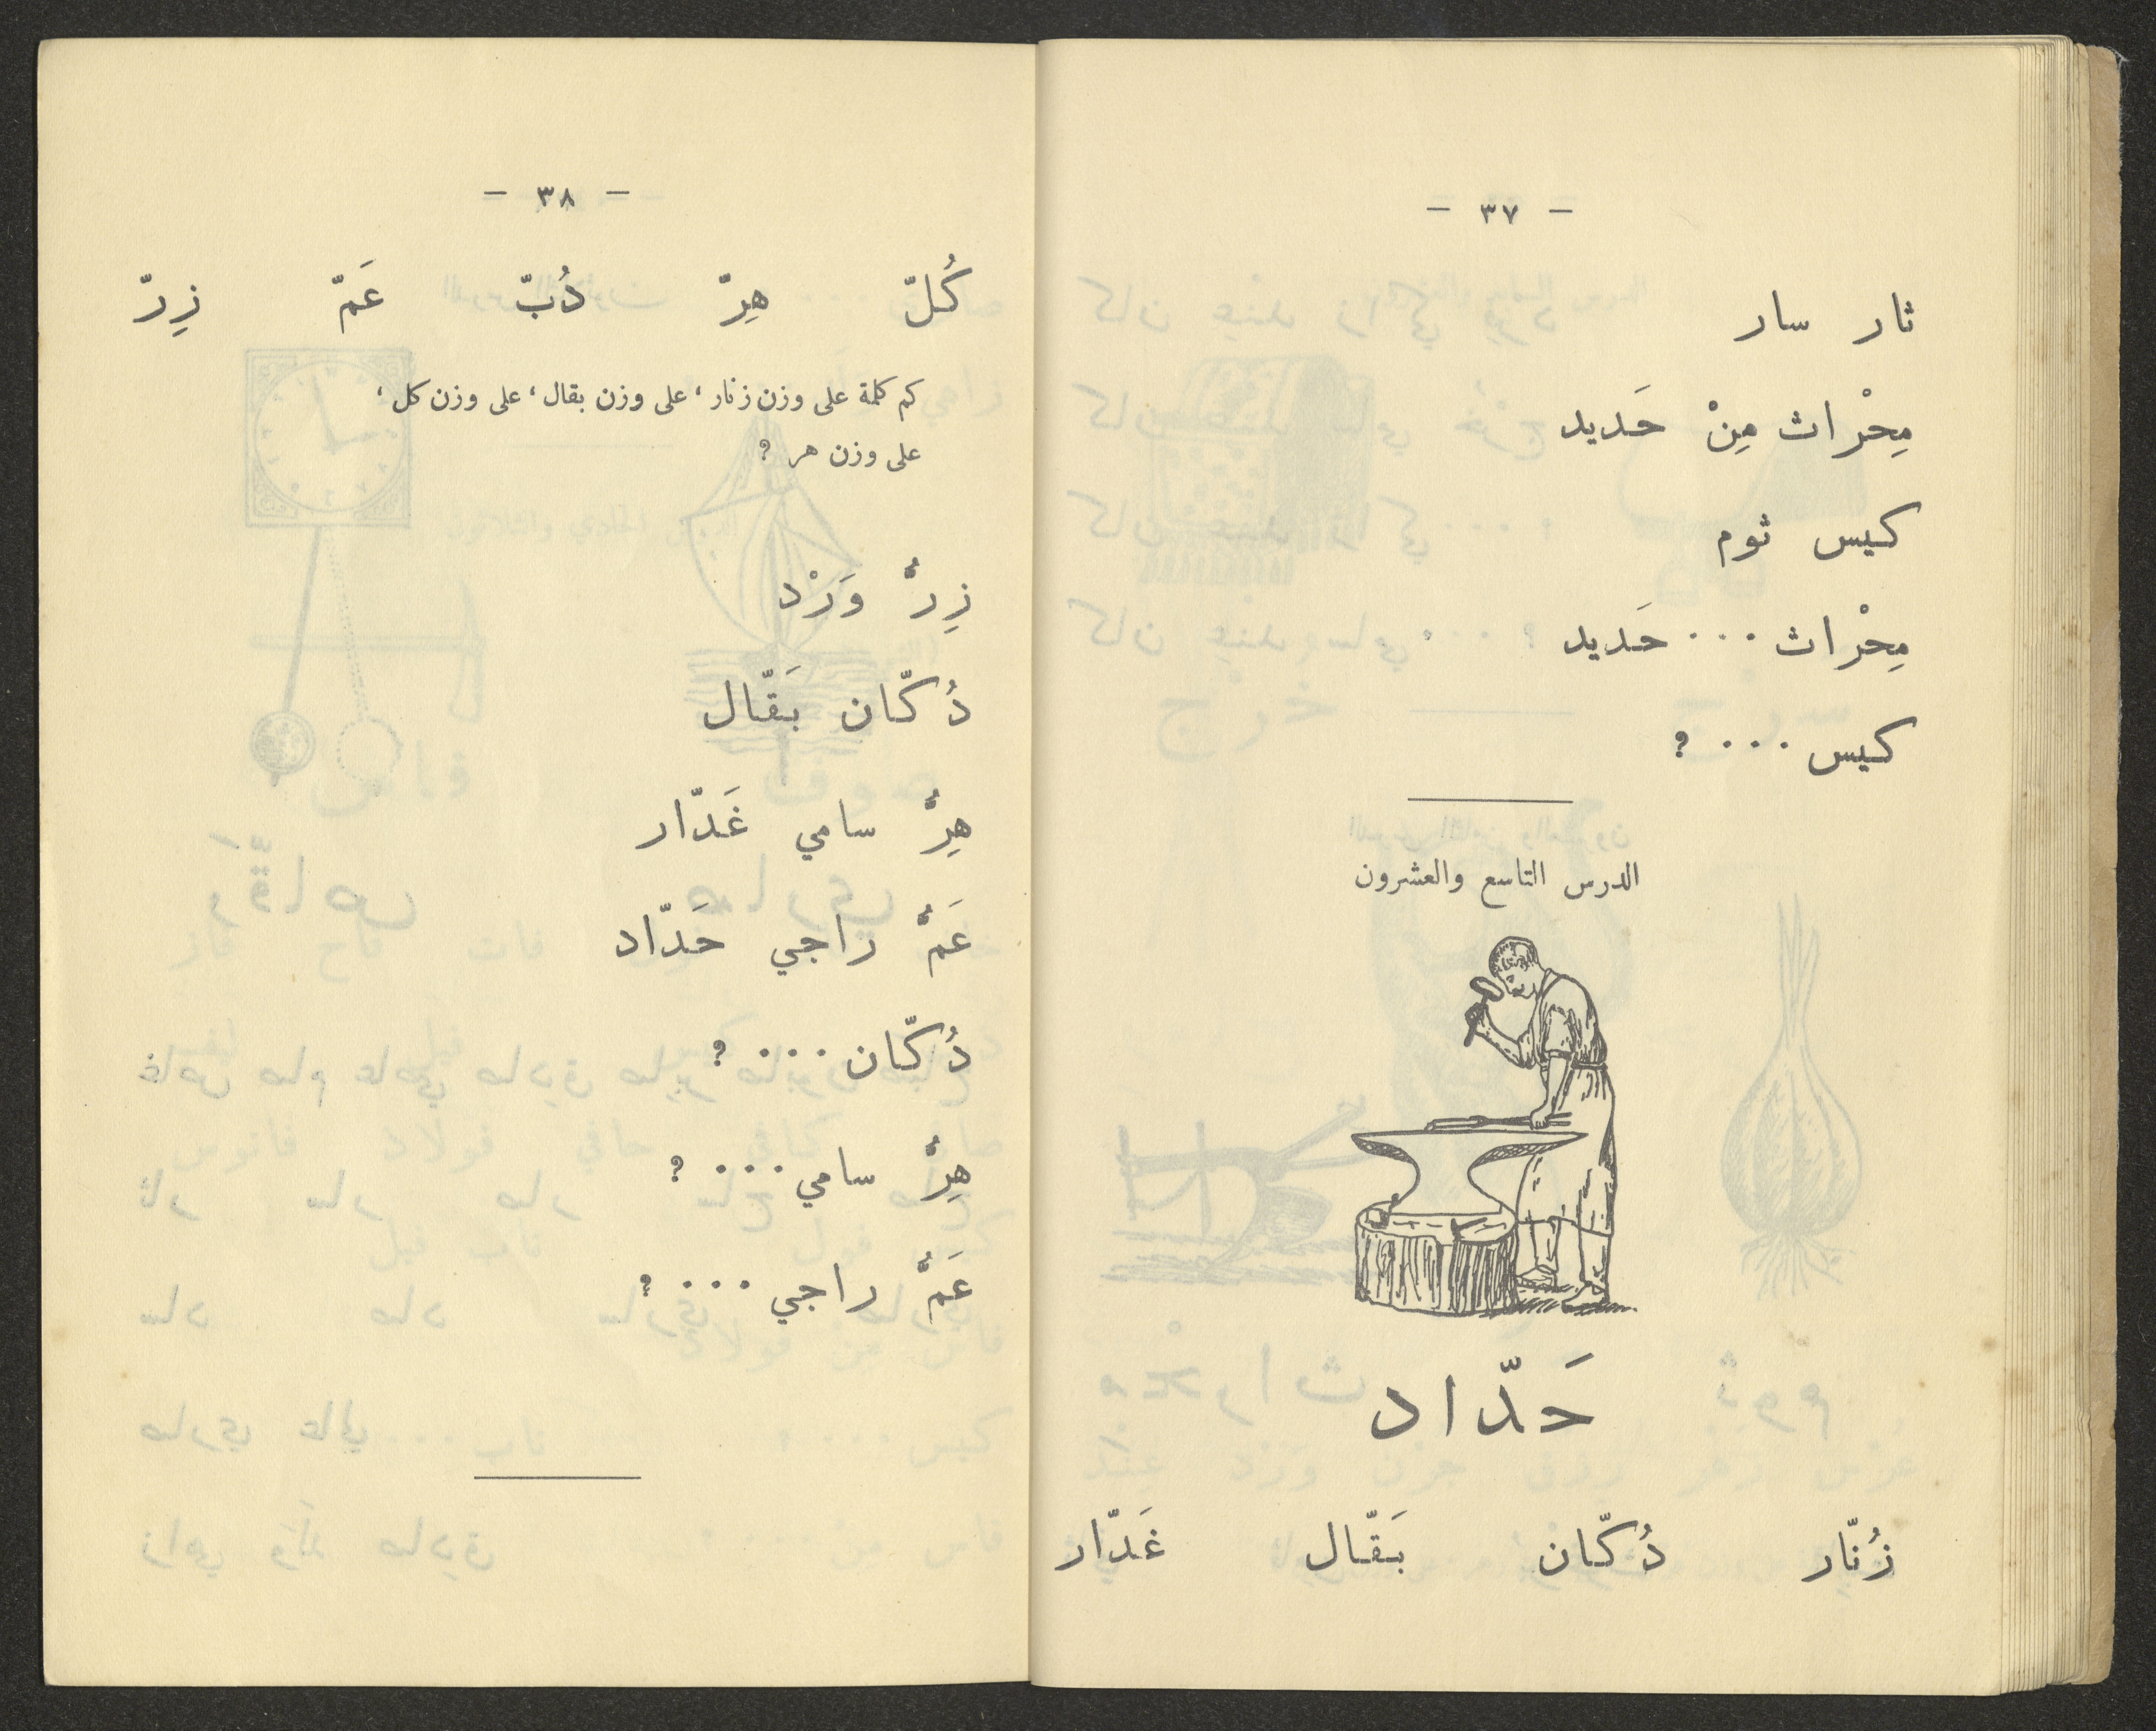 - ٣٧ -
ثار سار
مِحْراث مِنْ حَديد
كيس ثوم
مِحْراث ... حَديد
كيس ... ؟
الدرس التاسع والعشرون
حَدّاد
زُنّار دُكّان بَقّال غَدّار
- ٣٨ -
كُلّ هِرّ دُبّ عَمّ زِرّ
كم كلمة على وزن زنار ، على وزن بقال ، على وزن كل ،
على وزن هر ؟
زِرُّ وَرْد
دُكّان بَقّال
هِرُّ سامي غَدّار
عَمُّ راجي حَدّاد
دُكّان ... ؟
هِرُّ سامي ... ؟
عَمُّ راجي ... ؟